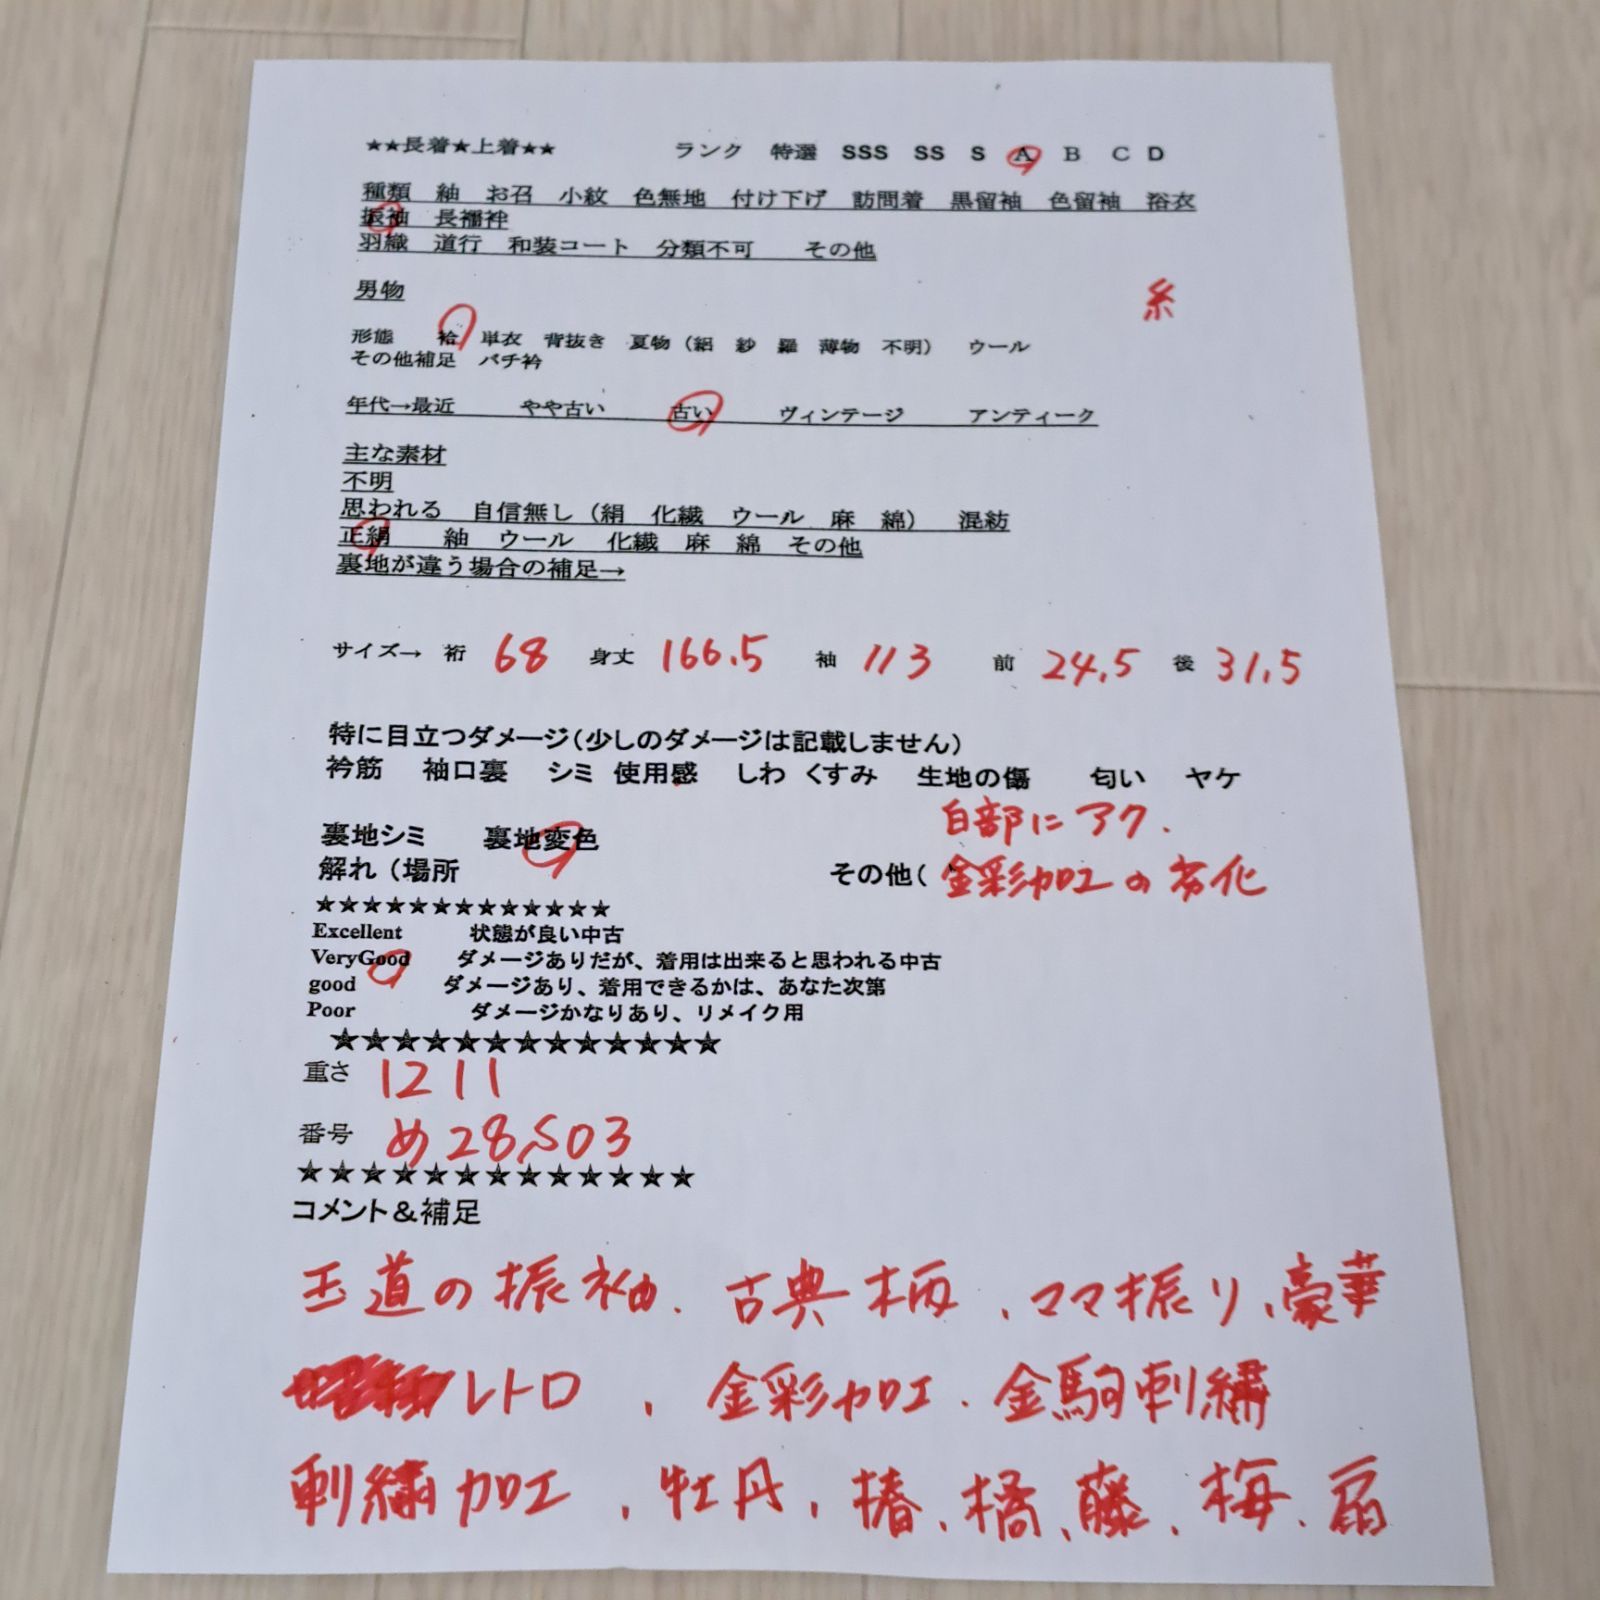 ★★長着★上着★★ ランク 特選 SSS SS S A B C D
種類 紬 お召 小紋 色無地 付け下げ 訪問着 黒留袖 色留袖 浴衣
振袖 長襦袢
羽織 道行 和装コート 分類不可 その他
男物 糸
形態 袷 単衣 背抜き 夏物（絽 紗 羅 薄物 不明） ウール
その他補足 バチ衿
年代→最近 やや古い 古い ヴィンテージ アンティーク
主な素材
不明
思われる 自信無し（絹 化繊 ウール 麻 綿） 混紡
正絹 紬 ウール 化繊 麻 綿 その他
裏地が違う場合の補足→
サイズ→ 裄 68 身丈 166.5 袖 113 前 24.5 後 31.5
特に目立つダメージ（少しのダメージは記載しません）
衿筋 袖口裏 シミ 使用感 しわ くすみ 生地の傷 匂い ヤケ
白部にアク.
裏地シミ 裏地変色
解れ（場所 その他（ 金彩加工の劣化
★★★★★★★★★★★★★
Excellent 状態が良い中古
VeryGood ダメージありだが、着用は出来ると思われる中古
good ダメージあり、着用できるかは、あなた次第
Poor ダメージかなりあり、リメイク用
★★★★★★★★★★★★★
重さ 1211
番号 め28,503
★★★★★★★★★★★★★
コメント＆補足
王道の振袖、古典柄、ママ振り、豪華
レトロ、金彩加工、金駒刺繍
刺繍加工、牡丹、椿、橘、藤、梅、扇